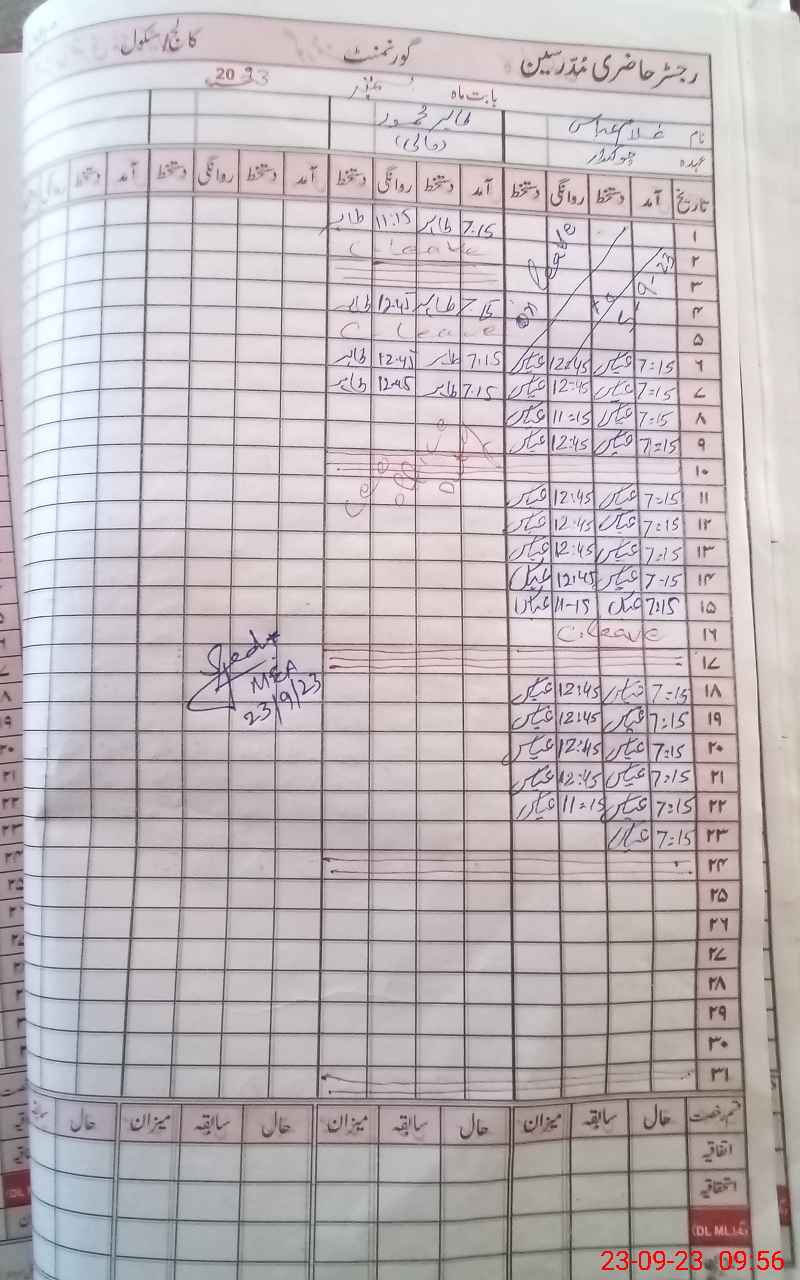 رجسٹر حاضری مُدرسین گورنمنٹ کالج/سکول
بابت ماہ ستمبر 2023
نام غلام عباس طاہر محمود
عہدہ چوکیدار (مالی)
تاریخ آمد دستخط روانگی دستخط آمد دستخط روانگی دستخط آمد دستخط روانگی دستخط آمد دستخط
۱ 7:15 طاہر 11:15 طاہر
۲ C. leave
۳
۴ 7:15 طاہر 12:45 طاہر
۵ C. leave
on leave
۶ 7:15 عباس 12:45 عباس 7:15 طاہر 12:45 طاہر
۷ 7:15 عباس 12:45 عباس 7:15 طاہر 12:45 طاہر
۸ 7:15 عباس 11:15 عباس
۹ 7:15 عباس 12:45 عباس
۱۰
۱۱ 7:15 عباس 12:45 عباس
۱۲ 7:15 عباس 12:45 عباس
۱۳ 7:15 عباس 12:45 عباس
۱۴ 7-15 عباس 12:45 عباس
۱۵ 7:15 عباس 11-15 عباس
۱۶ C. leave
۱۷
۱۸ 7:15 عباس 12:45 عباس
۱۹ 7:15 عباس 12:45 عباس
۲۰ 7:15 عباس 12:45 عباس
۲۱ 7:15 عباس 12:45 عباس
۲۲ 7:15 عباس 11:15 عباس
۲۳ 7:15 عباس
MEA
23/9/23
۲۴
۲۵
۲۶
۲۷
۲۸
۲۹
۳۰
۳۱
قسم رخصت حال سابقہ میزان حال سابقہ میزان حال سابقہ میزان حال
اتفاقیہ
استحقاقیہ
(DL ML)
23-09-23 09:56